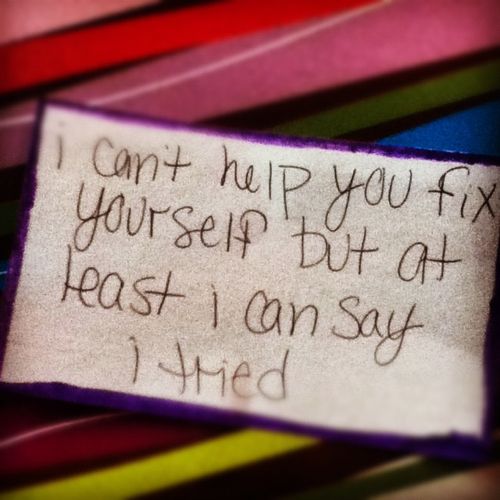 i can't help you fix
yourself but at
least i can say
i tried